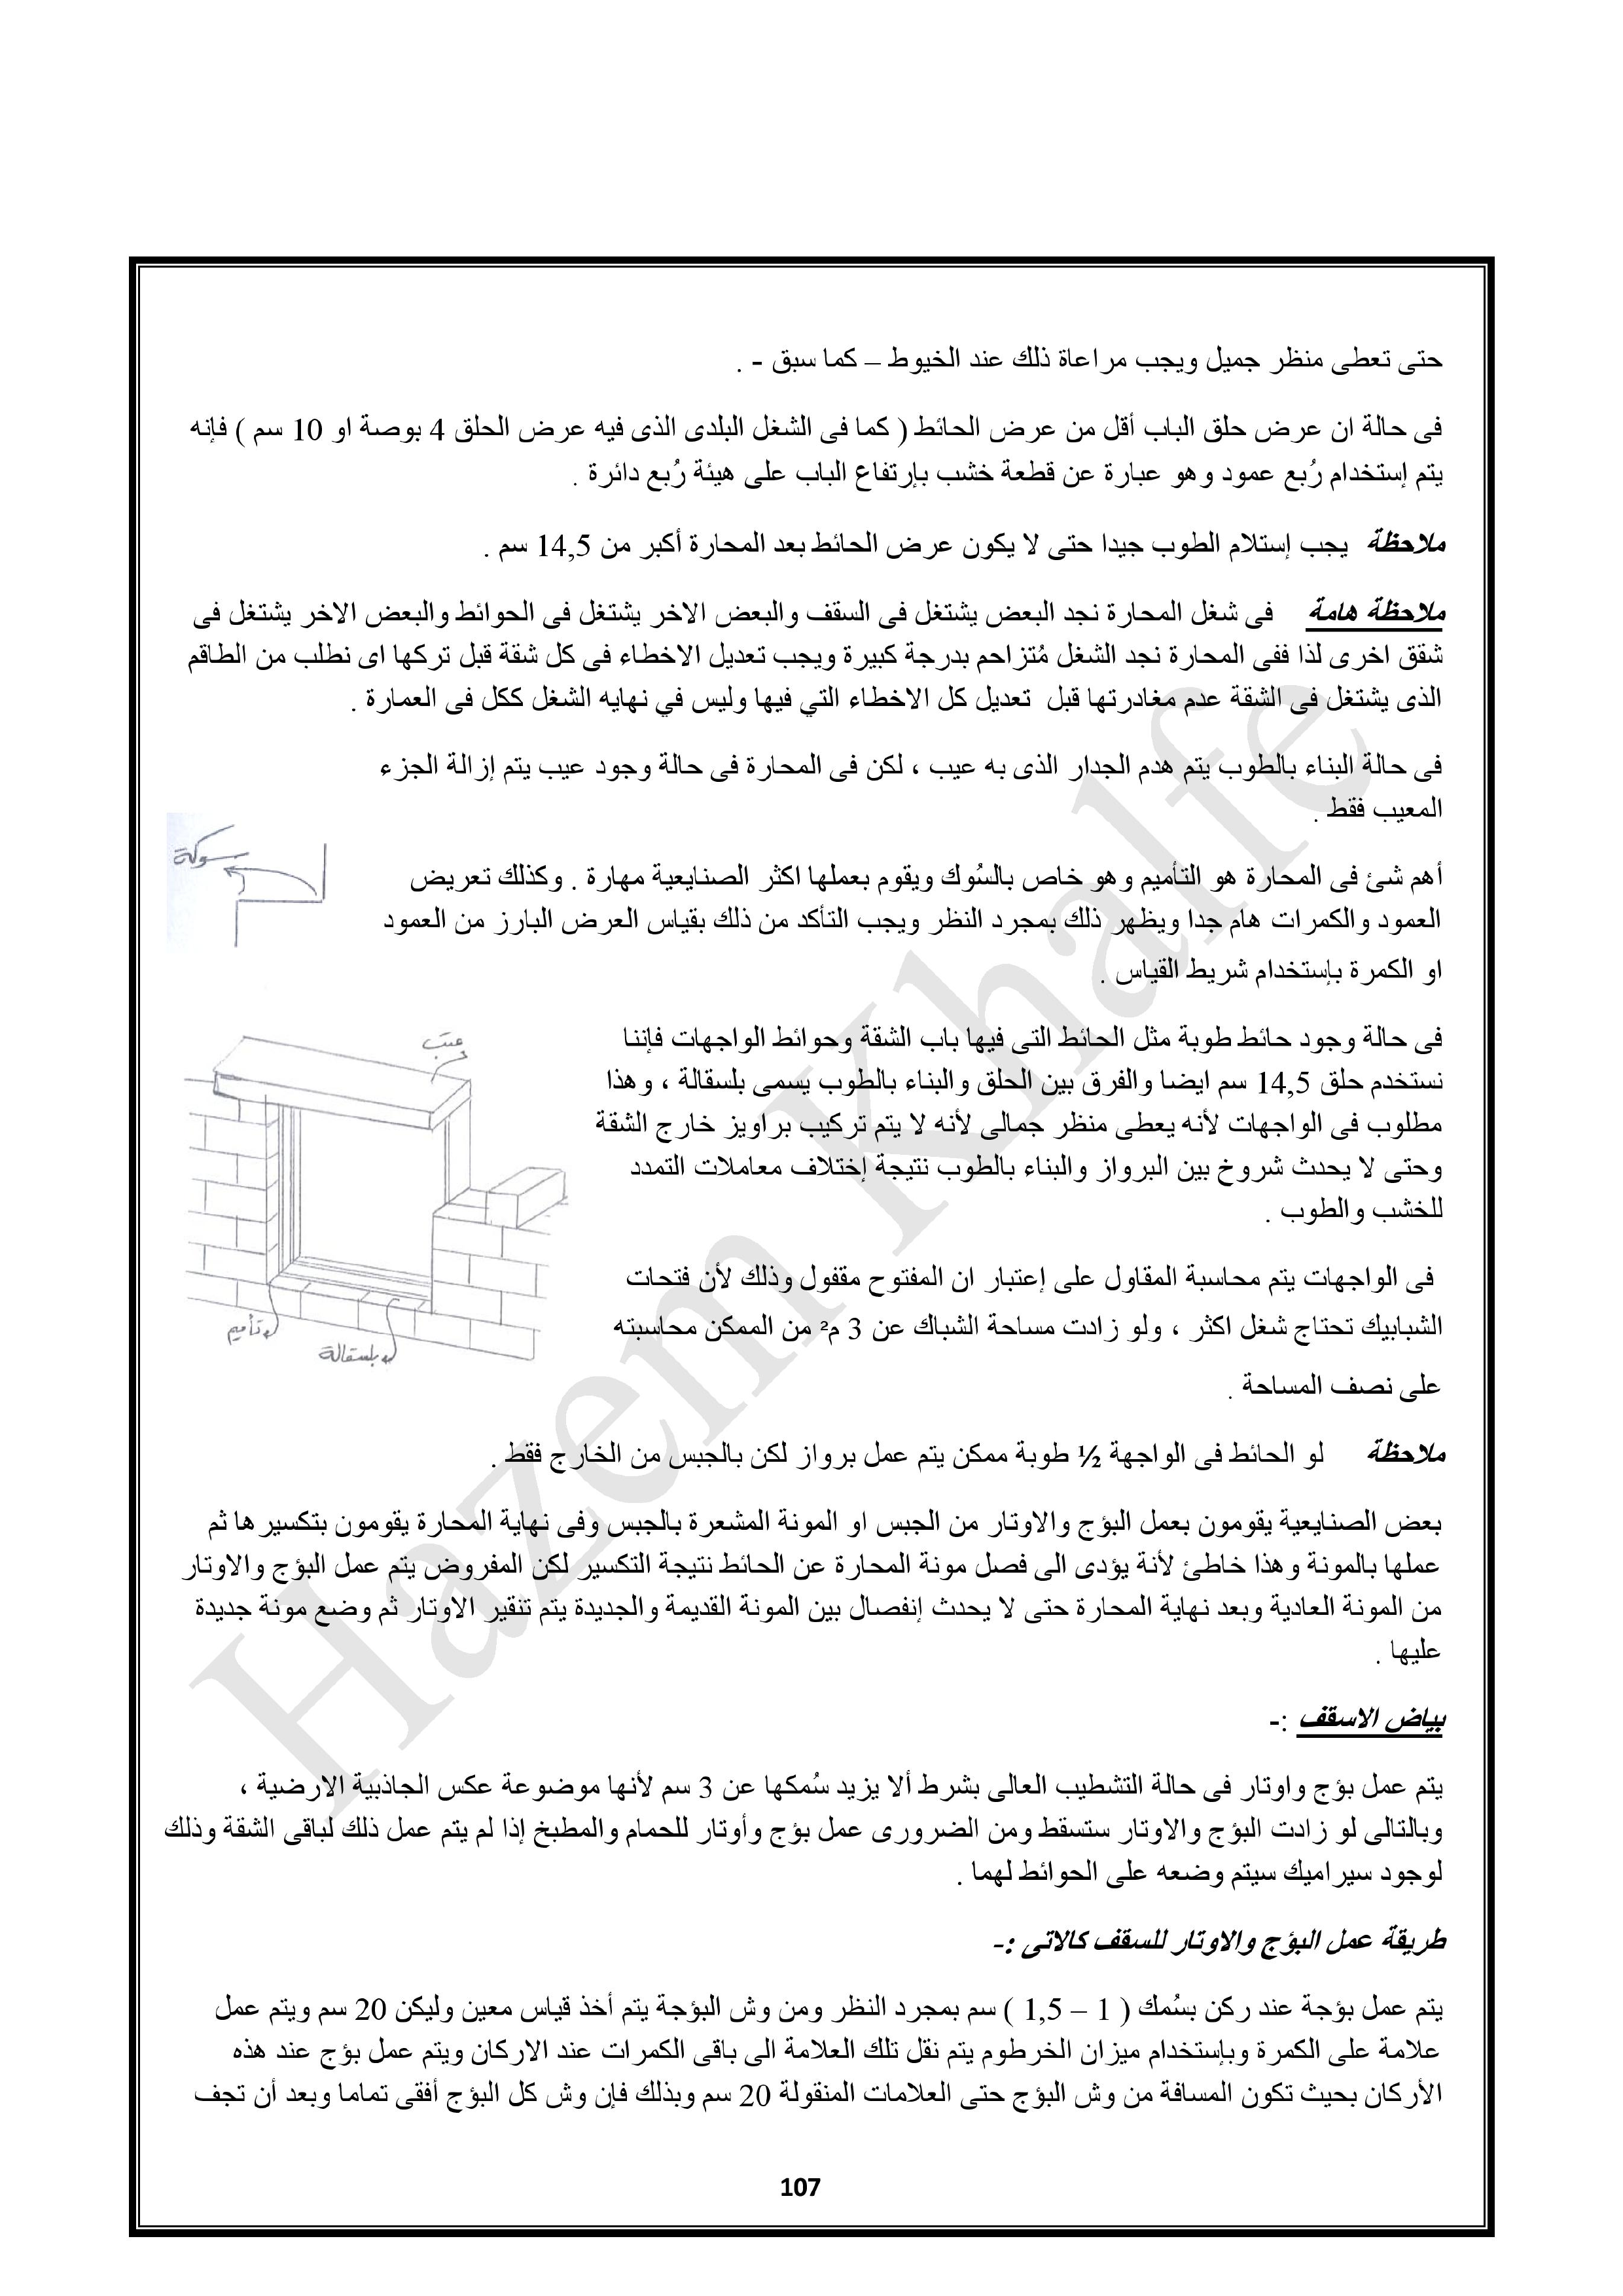 حتى تعطى منظر جميل ويجب مراعاة ذلك عند الخيوط – كما سبق - .
فى حالة ان عرض حلق الباب أقل من عرض الحائط ( كما فى الشغل البلدى الذى فيه عرض الحلق 4 بوصة او 10 سم ) فإنه
يتم إستخدام رُبع عمود وهو عبارة عن قطعة خشب بإرتفاع الباب على هيئة رُبع دائرة .
ملاحظة يجب إستلام الطوب جيدا حتى لا يكون عرض الحائط بعد المحارة أكبر من 14,5 سم .
ملاحظة هامة فى شغل المحارة نجد البعض يشتغل فى السقف والبعض الاخر يشتغل فى الحوائط والبعض الاخر يشتغل فى
شقق اخرى لذا ففى المحارة نجد الشغل مُتزاحم بدرجة كبيرة ويجب تعديل الاخطاء فى كل شقة قبل تركها اى نطلب من الطاقم
الذى يشتغل فى الشقة عدم مغادرتها قبل تعديل كل الاخطاء التي فيها وليس في نهايه الشغل ككل فى العمارة .
فى حالة البناء بالطوب يتم هدم الجدار الذى به عيب ، لكن فى المحارة فى حالة وجود عيب يتم إزالة الجزء
المعيب فقط .
سوكة
أهم شئ فى المحارة هو التأميم وهو خاص بالسُوك ويقوم بعملها اكثر الصنايعية مهارة . وكذلك تعريض
العمود والكمرات هام جدا ويظهر ذلك بمجرد النظر ويجب التأكد من ذلك بقياس العرض البارز من العمود
او الكمرة بإستخدام شريط القياس .
فى حالة وجود حائط طوبة مثل الحائط التى فيها باب الشقة وحوائط الواجهات فإننا
نستخدم حلق 14,5 سم ايضا والفرق بين الحلق والبناء بالطوب يسمى بلسقالة ، وهذا
مطلوب فى الواجهات لأنه يعطى منظر جمالى لأنه لا يتم تركيب براويز خارج الشقة
وحتى لا يحدث شروخ بين البرواز والبناء بالطوب نتيجة إختلاف معاملات التمدد
للخشب والطوب .
عتب
تأميم
بلسقالة
فى الواجهات يتم محاسبة المقاول على إعتبار ان المفتوح مقفول وذلك لأن فتحات
الشبابيك تحتاج شغل اكثر ، ولو زادت مساحة الشباك عن 3 م² من الممكن محاسبته
على نصف المساحة .
ملاحظة لو الحائط فى الواجهة ½ طوبة ممكن يتم عمل برواز لكن بالجبس من الخارج فقط .
بعض الصنايعية يقومون بعمل البؤج والاوتار من الجبس او المونة المشعرة بالجبس وفى نهاية المحارة يقومون بتكسيرها ثم
عملها بالمونة وهذا خاطئ لأنة يؤدى الى فصل مونة المحارة عن الحائط نتيجة التكسير لكن المفروض يتم عمل البؤج والاوتار
من المونة العادية وبعد نهاية المحارة حتى لا يحدث إنفصال بين المونة القديمة والجديدة يتم تنقير الاوتار ثم وضع مونة جديدة
عليها .
بياض الاسقف :-
يتم عمل بؤج واوتار فى حالة التشطيب العالى بشرط ألا يزيد سُمكها عن 3 سم لأنها موضوعة عكس الجاذبية الارضية ،
وبالتالى لو زادت البؤج والاوتار ستسقط ومن الضرورى عمل بؤج وأوتار للحمام والمطبخ إذا لم يتم عمل ذلك لباقى الشقة وذلك
لوجود سيراميك سيتم وضعه على الحوائط لهما .
طريقة عمل البؤج والاوتار للسقف كالاتى :-
يتم عمل بؤجة عند ركن بسُمك ( 1 – 1,5 ) سم بمجرد النظر ومن وش البؤجة يتم أخذ قياس معين وليكن 20 سم ويتم عمل
علامة على الكمرة وبإستخدام ميزان الخرطوم يتم نقل تلك العلامة الى باقى الكمرات عند الاركان ويتم عمل بؤج عند هذه
الأركان بحيث تكون المسافة من وش البؤج حتى العلامات المنقولة 20 سم وبذلك فإن وش كل البؤج أفقى تماما وبعد أن تجف
107
Hazem Khalfe